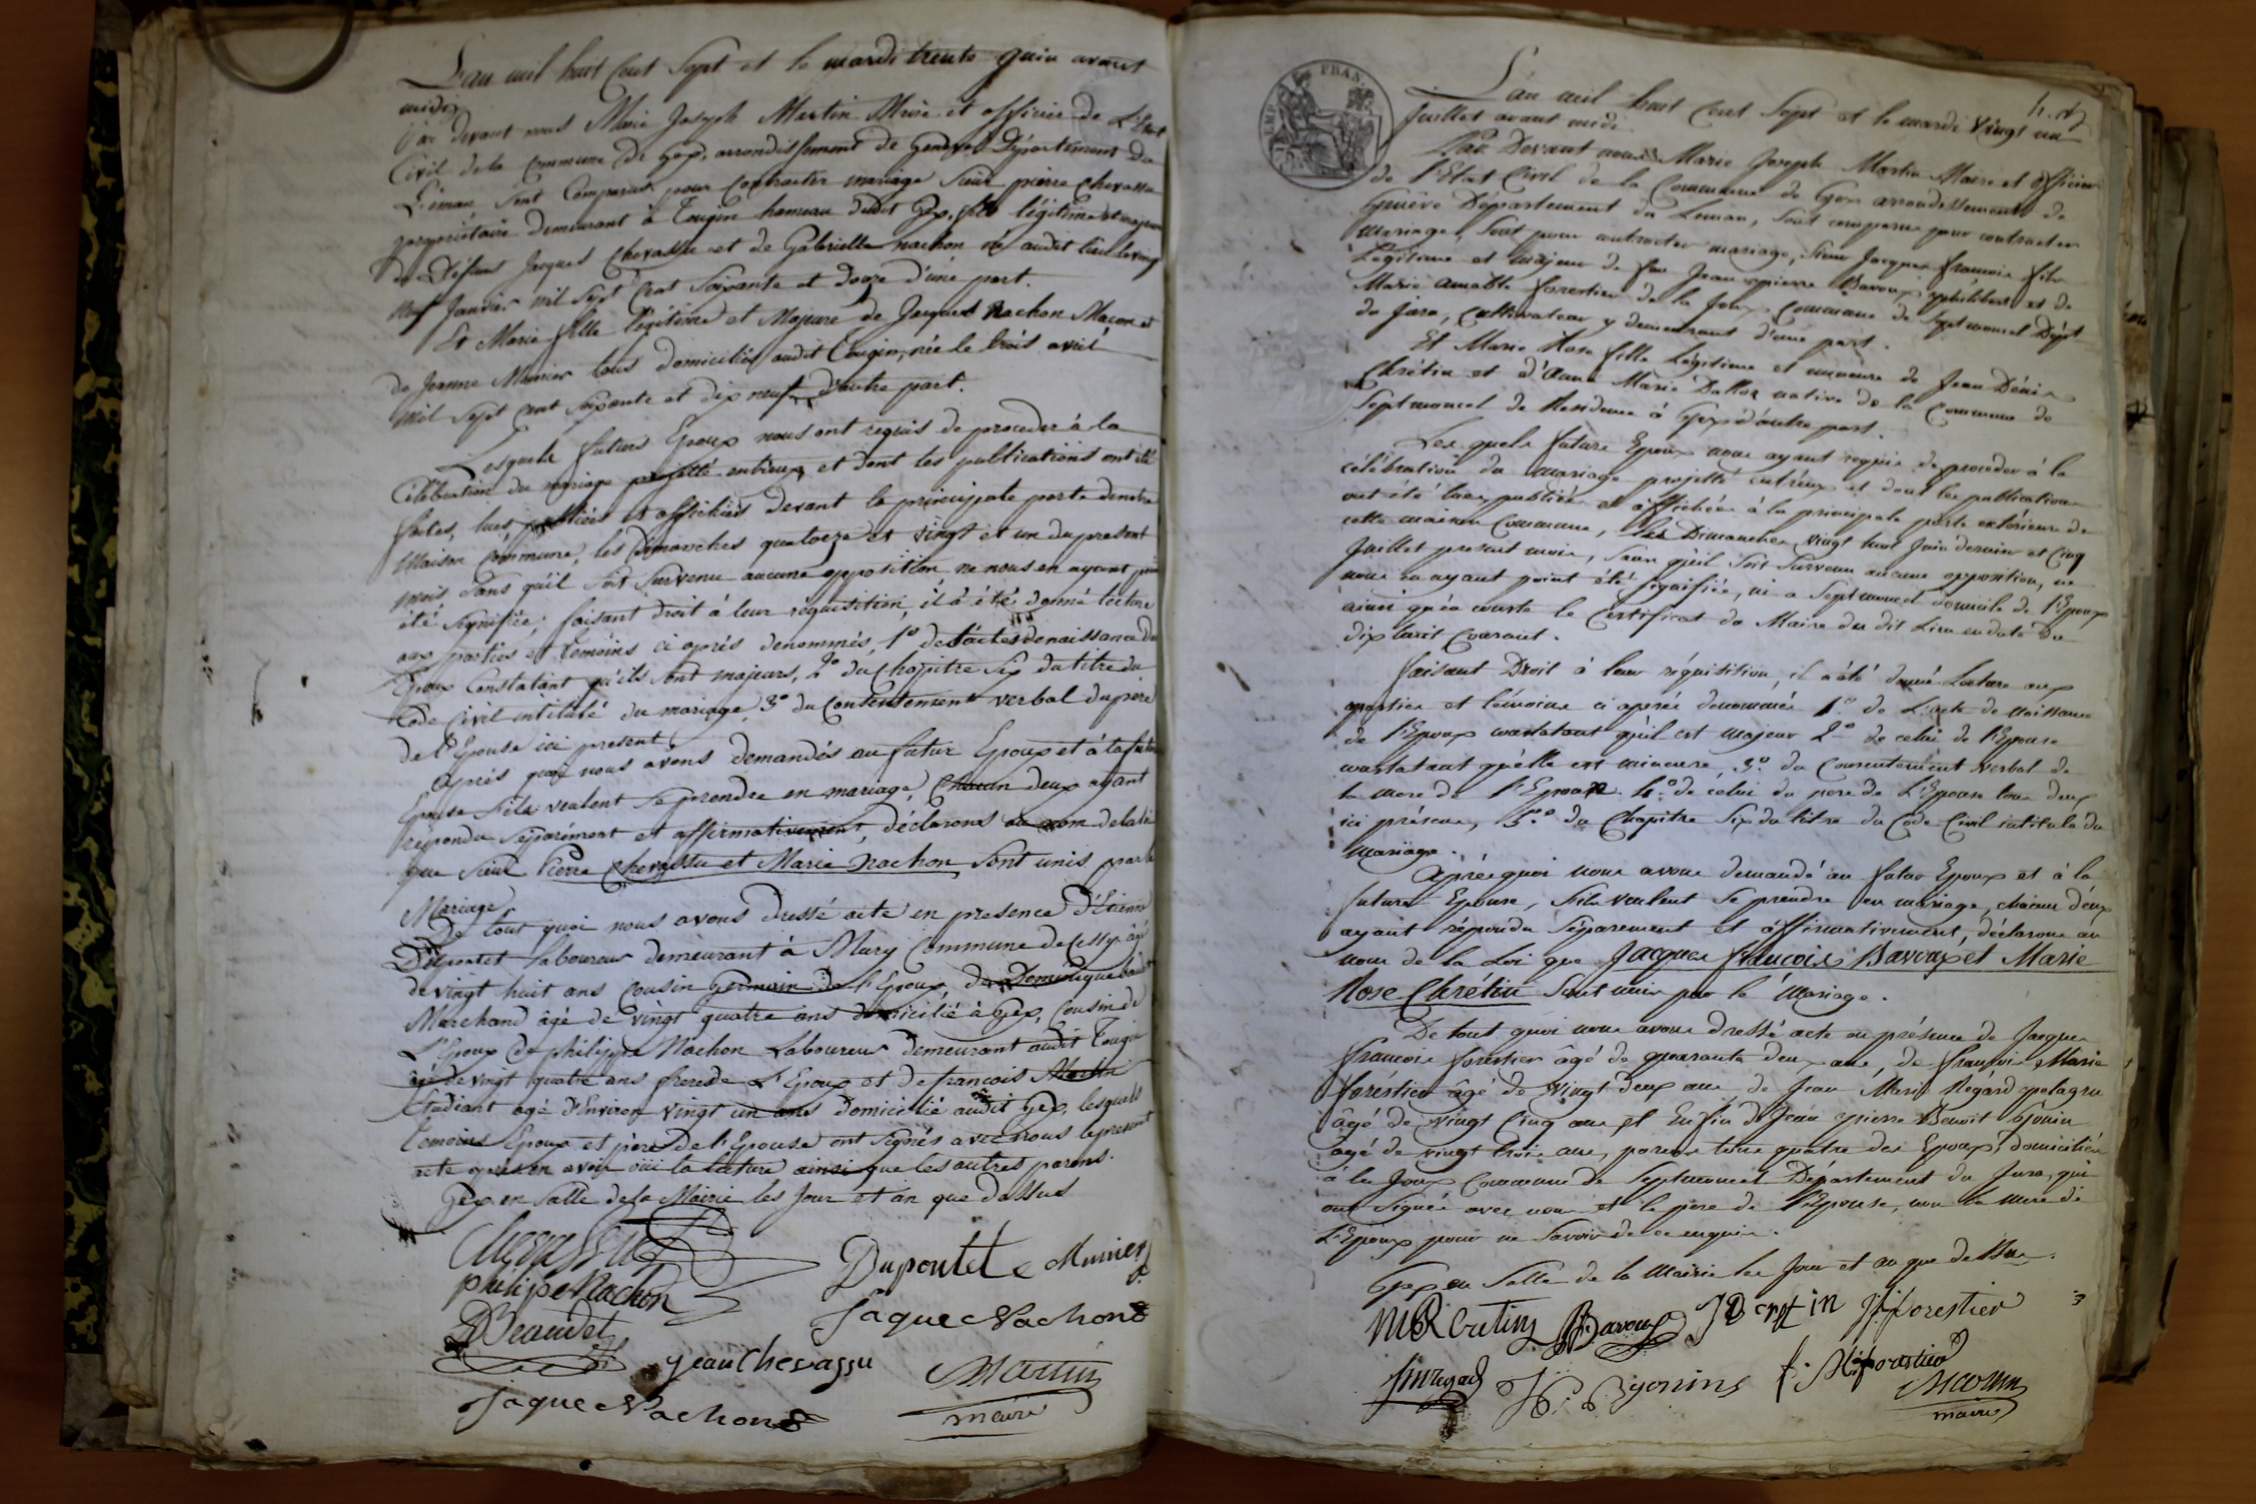 L'an mil huit Cent Sept et le mardi trente Juin avant
midi,
Par devant nous Marie Joseph Martin Maire et officier de L'Etat
Civil de la Commune de Gex, arrondissement de Genève Département du
Léman sont Comparus pour Contracter mariage Sieur pierre Chevassu
propriétaire demeurant à Tougin hameau dudit Gex, fils légitime et majeur
de Défunt Jacques Chevassu et de Gabrielle nachon né audit lieu le vingt
neuf Janvier mil Sept Cent Soixante et douze d'une part.
Et Marie fille légitime et Majeure de Jacques Nachon Macon et
de Jeanne Munier tous domiciliés audit Tougin, née le trois avril
Mil Sept Cent Soixante et dix neuf d'autre part.
Lesquels futurs Epoux nous ont requis de proceder à la
Célébration du mariage projetté entr'eux, et dont les publications ont été
faites, lues, publiées et affichées devant la principale porte de notre
Maison Commune, les Dimanches quatorze et vingt et un du present
mois Sans qu'il soit Survenu aucune opposition ne nous en ayant point
été Signifiée; faisant droit à leur réquisition, il a été donné lecture
aux parties et temoins ci après denommés, 1° de l'actes de naissance des
Epoux Constatant qu'ils sont majeurs, 2° du Chapitre Six du titre du
Code Civil intitulé du mariage 3° du Consentement verbal du père
de l'Epouse ici present
Après quoi nous avons demandés au futur Epoux et à la future
Epouse s'ils veulent Se prendre en mariage, Chacun deux ayant
répondu Séparément et affirmativement, déclarons au nom de la loi
que Sieur Pierre Chevassu et Marie Nachon Sont unis par le
Mariage
De tout quoi nous avons dressé acte en presence d'Etienne
Dupontet laboureur demeurant à Mury Commune de Cessy âgé
de vingt huit ans Cousin Germain de l'Epoux, de Dominique baudet
Marchand âgé de vingt quatre ans domicilié à Gex, Cousin de
L'Epoux de philippe Nachon Laboureur demeurant audit Tougin
âgé de vingt quatre ans frere de L'Epouse et de francois Martin
Etudiant agé d'Environ vingt un ans domicilié audit Gex, lesquels
temoins Epoux et père de l'Epouse ont Signés avec nous le present
acte après en avoir oui la lecture ainsi que les autres parens.
Gex en Salle de la Mairie les Jour et an que dessus
Chevassu
Dupontet Munier
philipe Nachon
Jaque Nachon
DBeaudet
Jean Chevassu
Martin
Jaque Nachon
maire
EMP. FRAN.
L'an mil huit Cent Sept et le mardi vingt un
Juillet avant midi
Par Devant nous Marie Joseph Martin Maire et officier
de l'Etat Civil de la Commune de Gex arrondissement de
Genève Département du Leman, sont comparus pour contracter
Mariage, Sont pour contracter mariage, Sieur Jacques francois fils
Légitime et Majeur de feu Jean pierre Bavoux philibert et de
Marie amable forestier de la Joux Commune de Septmoncel Dépt
du Jura, Cultivateur y demeurant d'une part.
Et Marie Rose fille Légitime et mineure de Jean Dénis
Chrétin et d'Anne Marie Dalloz native de la Commune de
Septmoncel de Residence à Gex d'autre part.
Les quels futurs Epoux nous ayant requis de proceder à la
célébration du mariage projetté entr'eux et dont les publications
ont été lues, publiées et affichées à la principale porte extérieure de
cette maison Commune, les Dimanches vingt huit Juin dernier et Cinq
Juillet present mois, sans qu'il soit Survenu aucune opposition, ne
nous en ayant point été signifiée, ni à Septmoncel domicile de l'Epoux
ainsi qu'en conste le Certificat du Maire du dit Lieu en date du
dix huit Courant.
faisant Droit à leur réquisition, il a été donné Lecture aux
parties et témoins ci après denommés 1° de L'acte de naissance
de l'Epoux constatant qu'il est majeur 2° de celui de l'Epouse
constatant qu'elle est mineure, 3° du Consentement verbal de
la mere de l'Epoux 4° de celui du pere de L'Epouse tous deux
ici présens, 5° du Chapitre Six du titre du Code Civil intitulé du
Mariage.
Après quoi nous avons demandé au futur Epoux et à la
future Epouse, s'ils veulent Se prendre en mariage, chacun d'eux
ayant répondu Séparement et affirmativement, déclarons au
nom de la Loi que Jacques francois Bavoux et Marie
Rose Chrétin Sont unis par le Mariage.
De tout quoi nous avons dressé acte en présence de Jacques
francois forestier âgé de quarante deux ans, de françois Marie
foréstier âgé de vingt deux ans de Jean Marie Regard pelagru
âgé de vingt Cinq ans, et Enfin de Jean pierre Benoit Gonin
âgé de vingt trois ans, parens tous quatre des Epoux, domiciliés
à la Joux Commune de Septmoncel Département du Jura, qui
ont Signés avec nous et le père de l'Epouse, non la mere de
L'Epoux pour ne Savoir de ce enquise.
Gex en Salle de la Mairie les Jour et an que dessus.
MR Cretin Bavoux JD Cretin J. forestier
JM regad f: M: forestier
Martin
maire